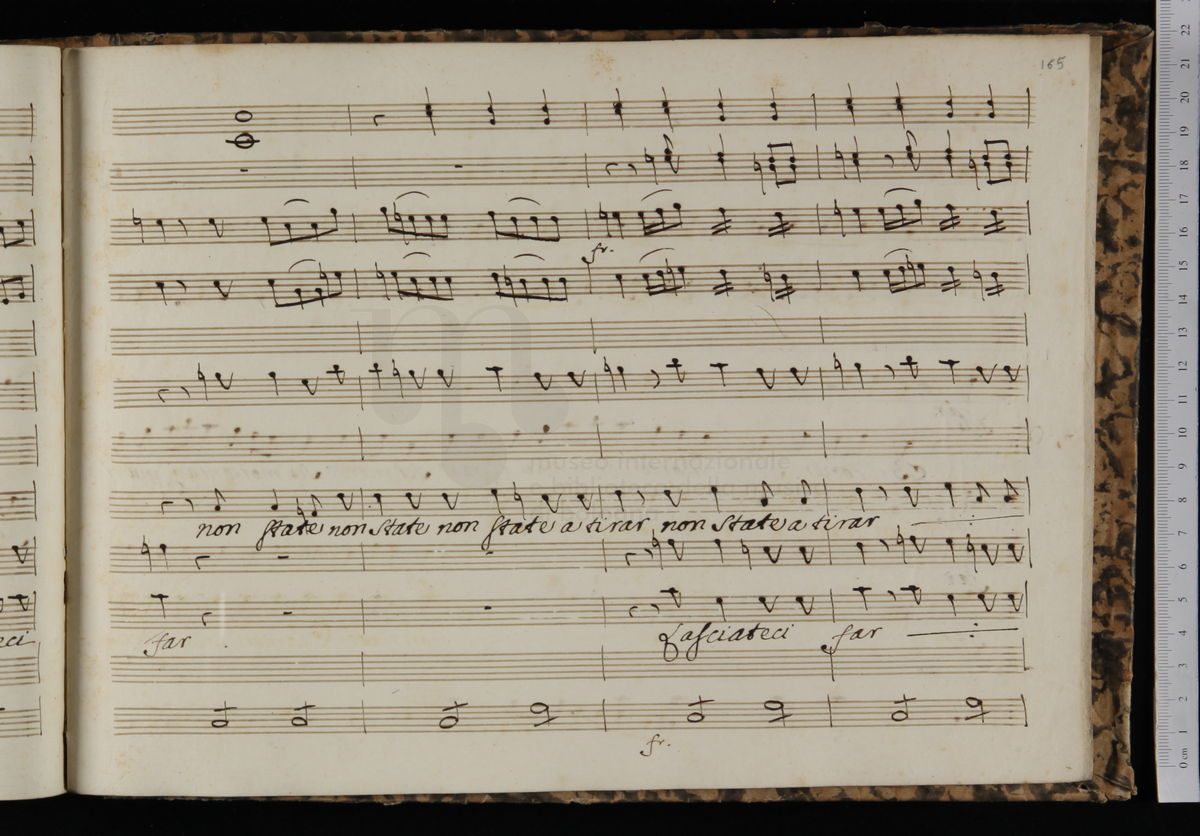 165
fr.
non state non state non state a tirar non state a tirar
far
Lasciateci far
eci
fr.
museo internazionale
e biblioteca della musica
22
21
20
19
18
17
16
15
14
13
12
11
10
9
8
7
6
5
4
3
2
1
0 cm